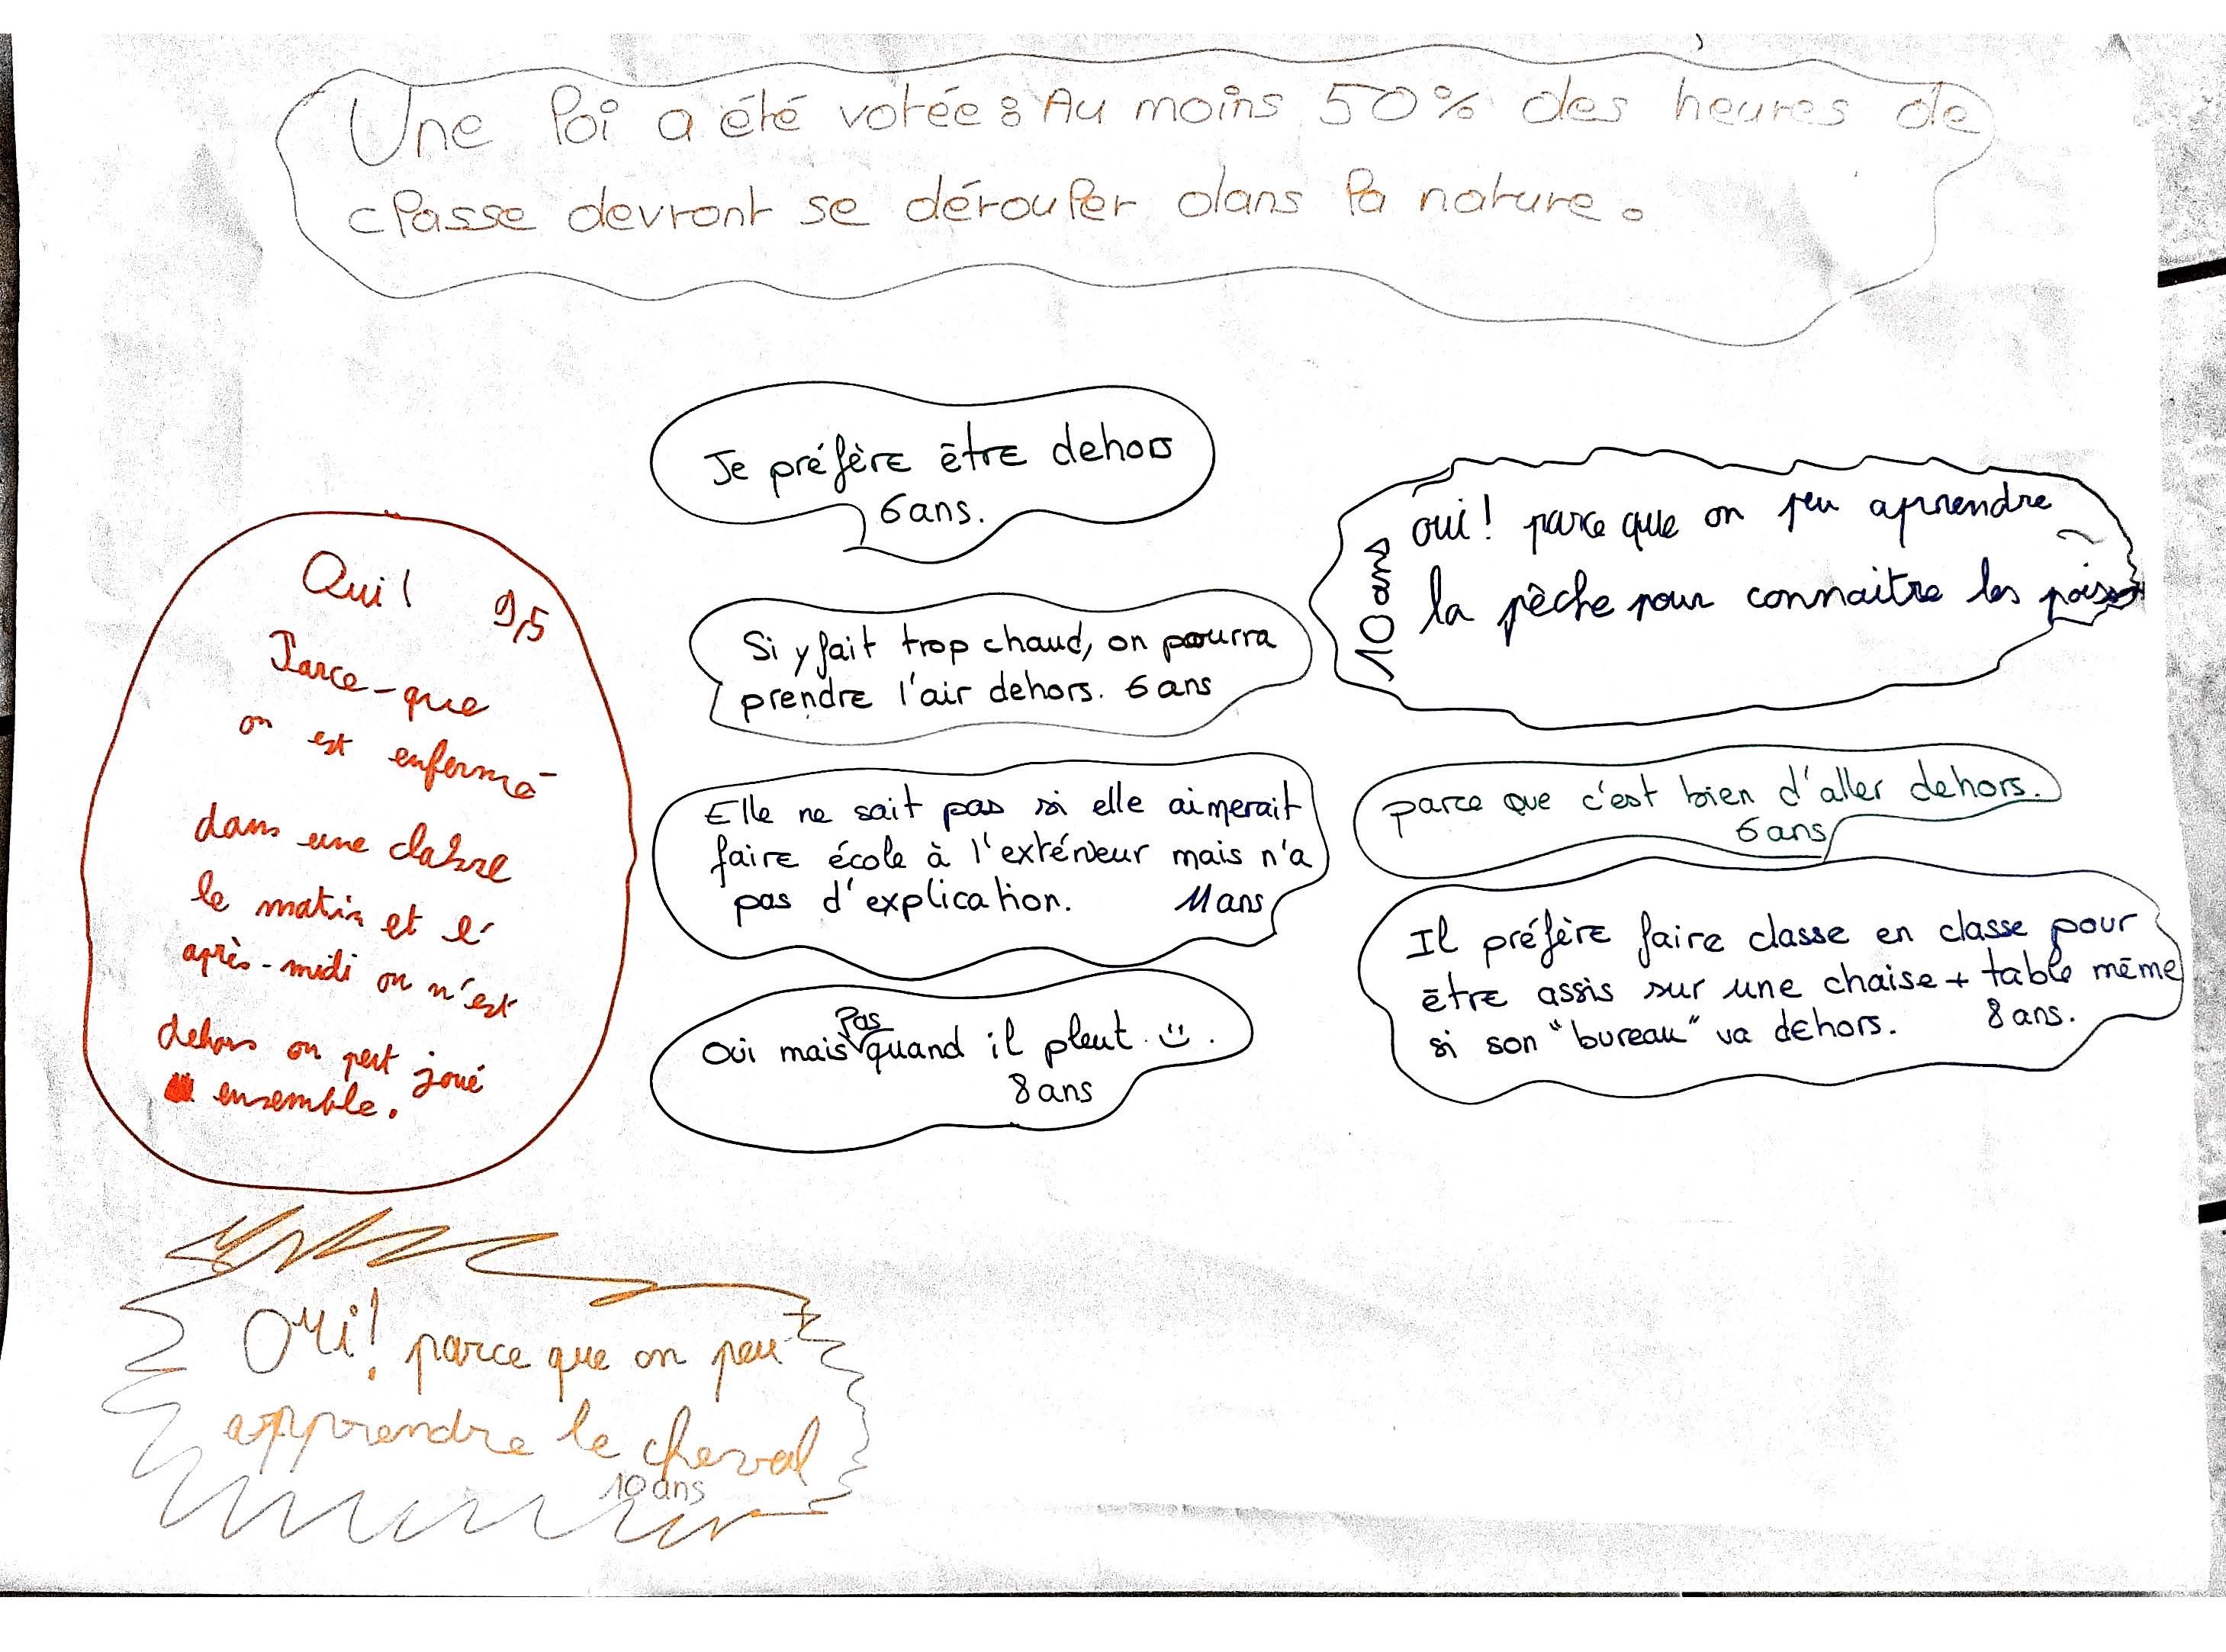 Une loi a été votée : Au moins 50% des heures de
classe devront se dérouler dans la nature.
Je préfère être dehors
6 ans.
Oui ! 9,5
Parce-que
on est enfermé
dans une classe
le matin et l'
après-midi on n'est
dehors on peut joué
ensemble.
Si y fait trop chaud, on pourra
prendre l'air dehors. 6 ans
Elle ne sait pas si elle aimerait
faire école à l'extérieur mais n'a
pas d'explication. 11 ans
Oui mais pas quand il pleut :).
8 ans
10 ans
oui ! parce que on peu aprendre
la pêche pour connaitre les
parce que c'est bien d'aller dehors.
6 ans
Il préfère faire classe en classe pour
être assis sur une chaise + table même
si son "bureau" va dehors. 8 ans.
Oui ! parce que on peut
apprendre le cheval
10 ans